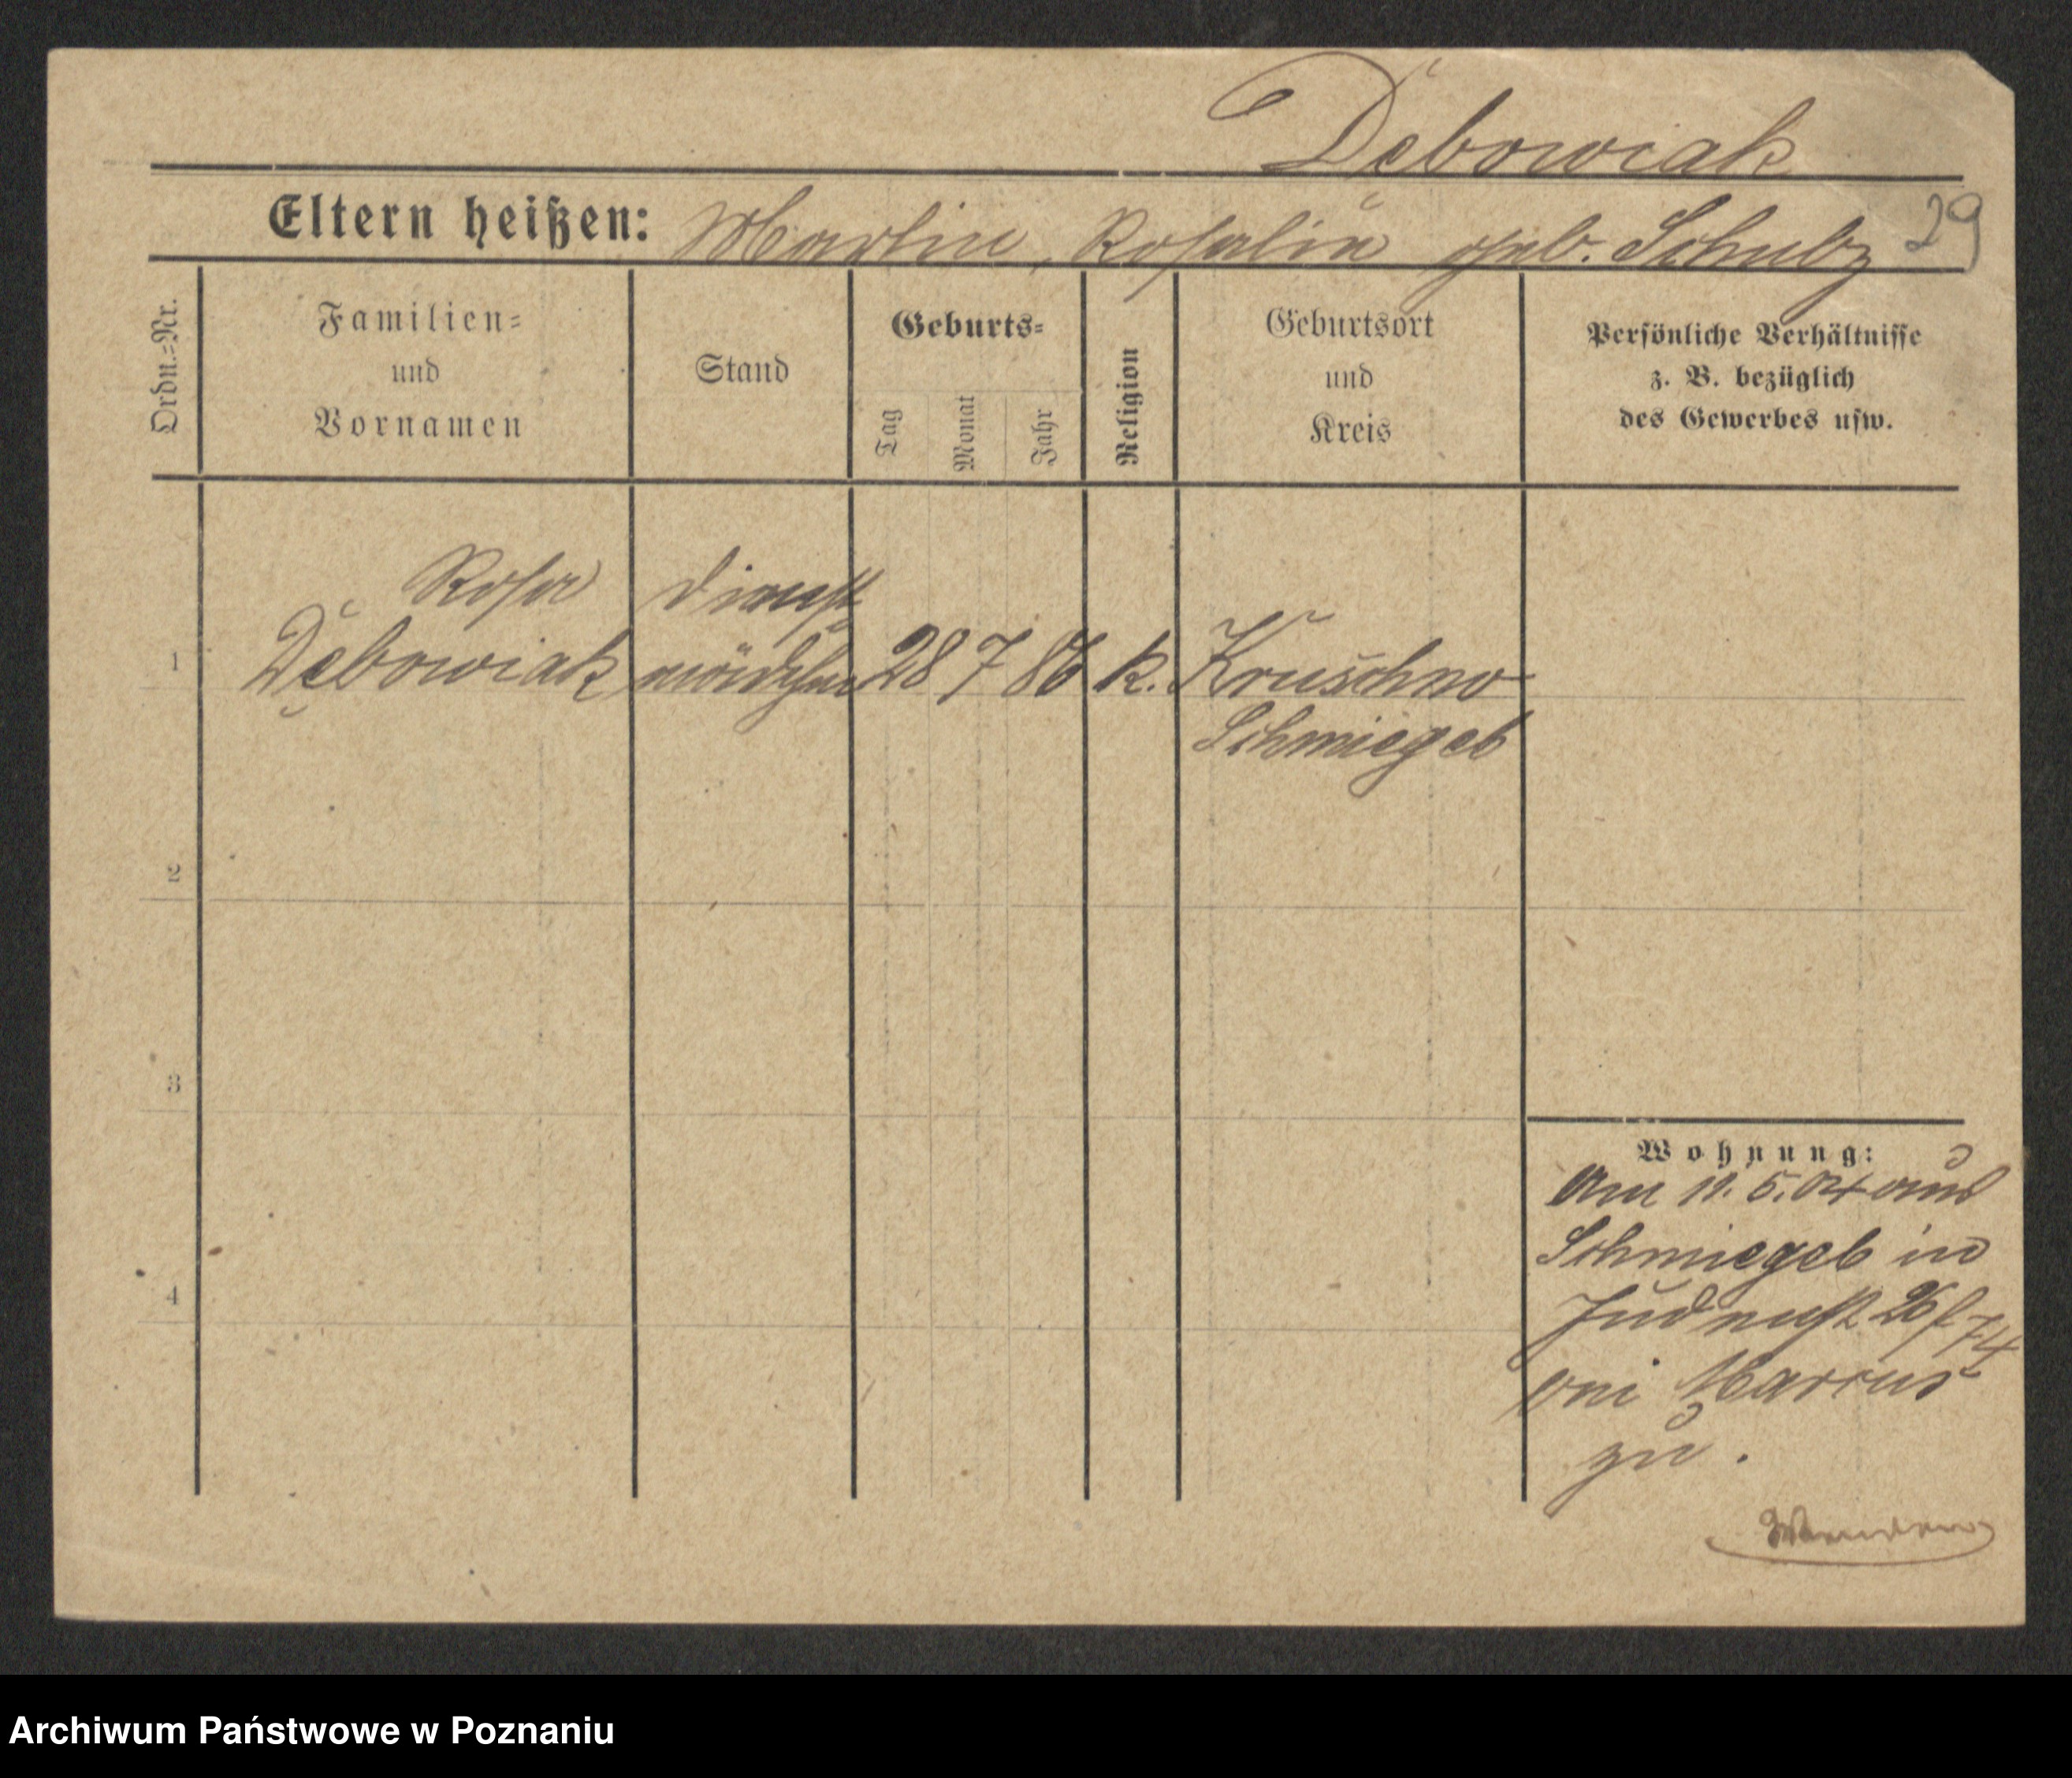 Dębowiak
Eltern heißen: Martin, Rosalie geb. Schulz 29
Ordn.=Nr.
Familien=
und
Vornamen
Stand
Geburts=
Tag
Monat
Jahr
Religion
Geburtsort
und
Kreis
Persönliche Verhältnisse
z. B. bezüglich
des Gewerbes usw.
Rosa
Dienst
1 Dębowiak mädchen 28 7 86 k. Kruschno
Schmiegel
2
3
4
Wohnung:
Am 11.5.04 aus
Schmiegel in
Judenstr. 26
bei Marcus
zu.
Archiwum Państwowe w Poznaniu